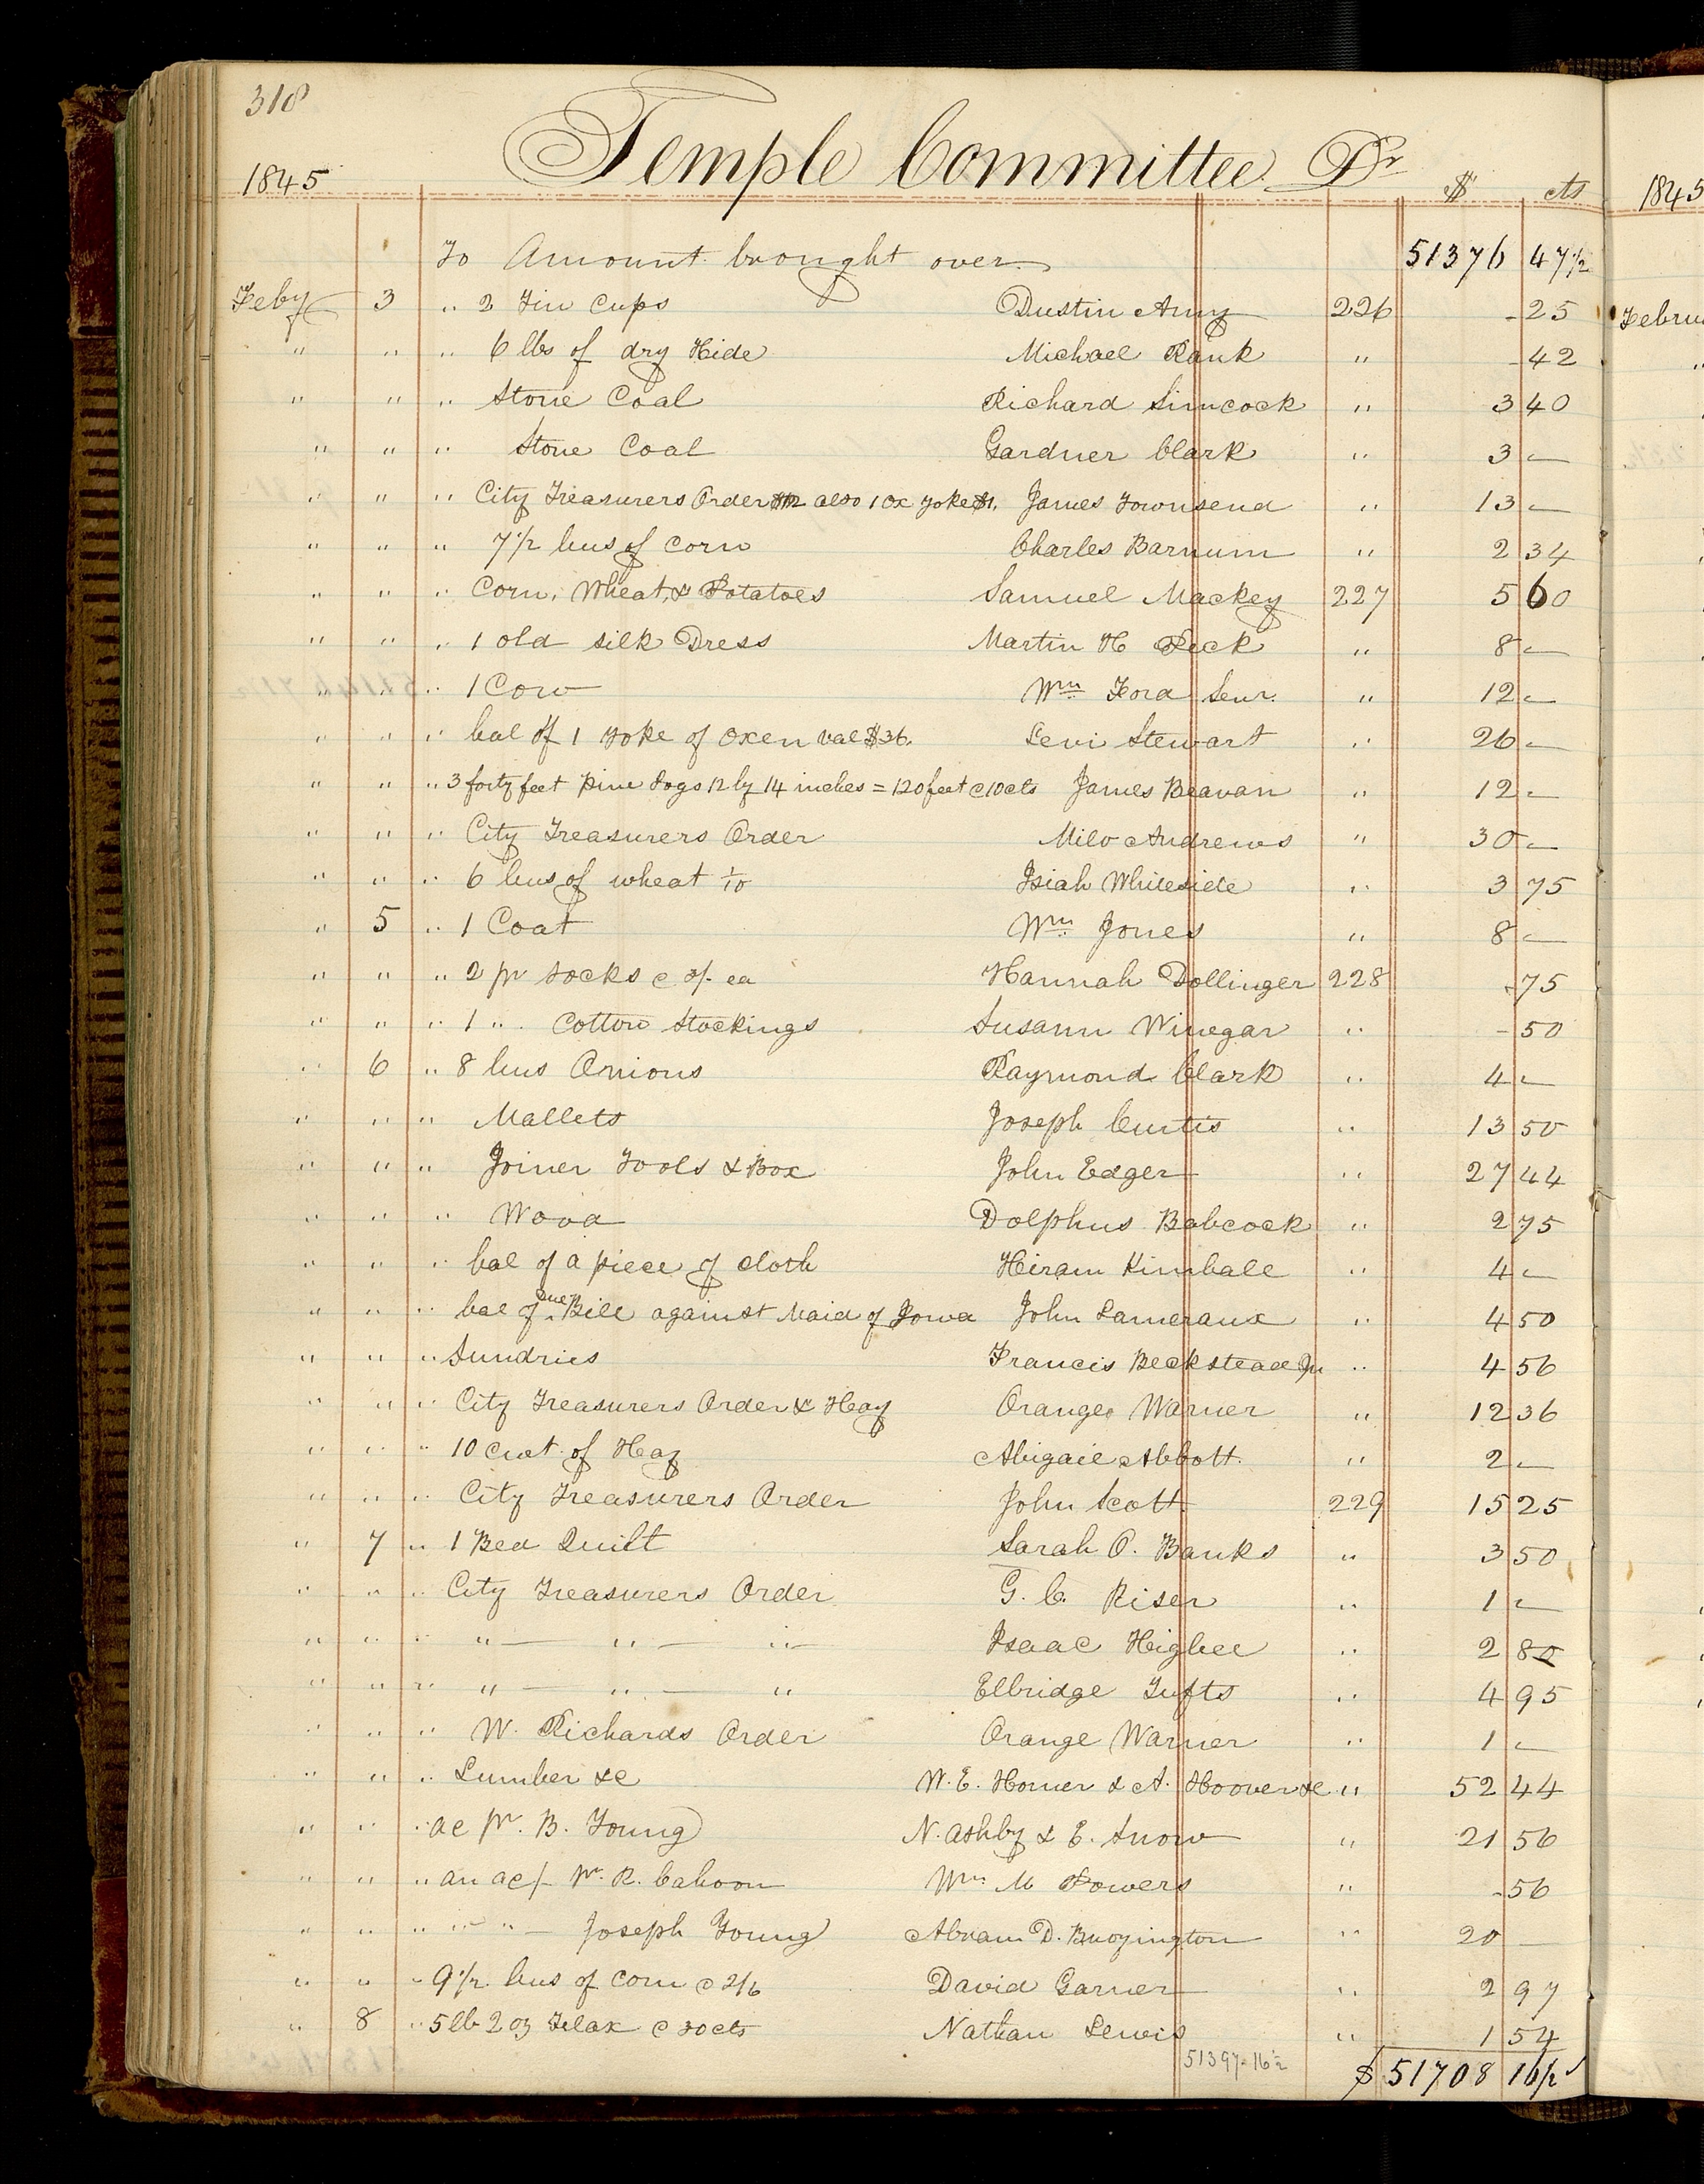 318
Temple Committee Dr
1845 $ cts
1845
To Amount brought over 51376 47½
Feby 3 " 2 Tin Cups Dustin Amy 226 - 25
Februa
" " " 6 lbs of dry Hide Michael Rank " - 42
" " " Stone Coal Richard Simcock " 3 40
" " " Stone Coal Gardner Clark " 3 —
" " " City Treasurers Order $12 also 1 ox yoke $1. James Townsend " 13 —
" " " 7½ bus of corn Charles Barnum " 2 34
" " " Corn, Wheat, & Potatoes Samuel Mackey 227 5 60
" " " 1 old silk Dress Martin H Peck " 8 —
" " " 1 Cow Wm Ford Senr. " 12 —
" " " bal of 1 yoke of oxen val $36. Levi Stewart " 26 —
" " " 3 forty feet pine Logs 12 by 14 inches = 120 feet @ 10 cts James Beavan " 12 —
" " " City Treasurers Order Milo Andrews " 30 —
" " " 6 bus of wheat 1/10 Isiah Whiteside " 3 75
" 5 " 1 Coat Wm Jones " 8 —
" " " 2 pr socks @ 3/- ea Hannah Dollinger 228 - 75
" " " 1 " Cotton Stockings Susann Winegar " - 50
" 6 " 8 bus Onions Raymond Clark " 4 —
" " " Mallets Joseph Curtis " 13 50
" " " Joiner Tools & Box John Edger " 27 44
" " " Wood Dolphus Babcock " 2 75
" " " bal of a piece of cloth Hiram Kimball " 4 —
" " " bal of due Bill against Maid of Iowa John Lameraux " 4 50
" " " Sundries Francis Beckstead Jr " 4 56
" " " City Treasurers Order & Hay Orange Warner " 12 36
" " " 10 cwt of Hay Abigail Abbott. " 2 —
" " " City Treasurers Order John Scott 229 15 25
" 7 " 1 Bed Quilt Sarah O. Banks " 3 50
" " " City Treasurers Order G. C. Riser " 1 —
" " " " — " — " Isaac Higbee " 2 80
" " " " — " — " Elbridge Tufts " 4 95
" " " W. Richards Order Orange Warner " 1 —
" " " Lumber &c W. E. Horner & A. Hoover &c " 52 44
" " " ac pr. B. Young N. Ashby & E. Snow " 21 56
" " " an ac/- pr. R. Cahoon Wm M Powers " - 56
" " " " " — Joseph Young Abram D. Buoyington " 20 —
" " " 9½ bus of corn @ 2/6 David Garner " 2 97
" 8 " 5 lb 2 oz Flax @ 30 cts Nathan Lewis " 1 54
51397-16½
$ 51708 16½